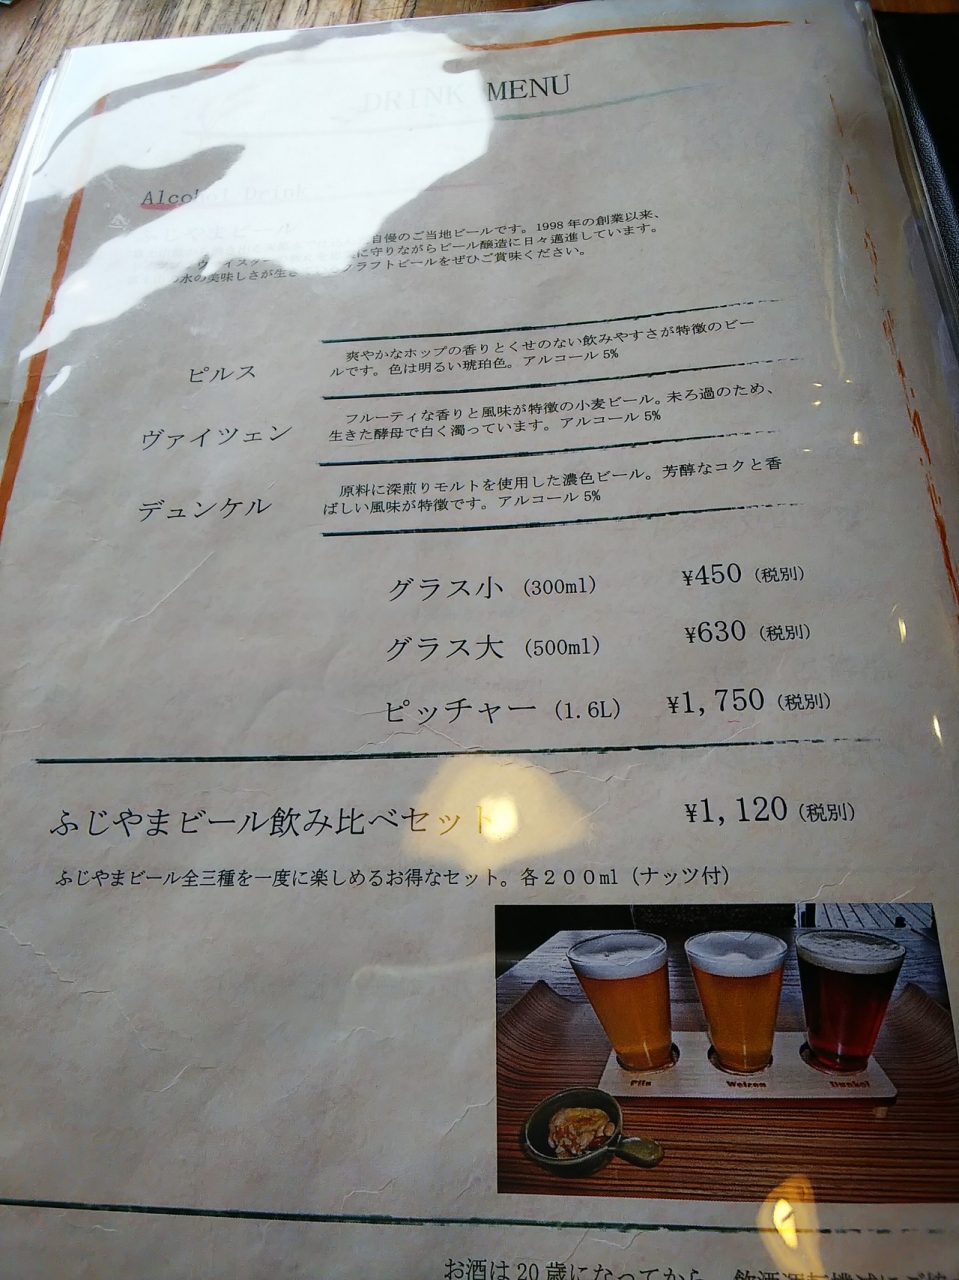 DRINK MENU
Alcohol Drink
自慢のご当地ビールです。1998年の創業以来、
に守りながらビール醸造に日々邁進しています。
水の美味しさが生き クラフトビールをぜひご賞味ください。
ピルス
爽やかなホップの香りとくせのない飲みやすさが特徴のビー
ルです。色は明るい琥珀色。アルコール5%
ヴァイツェン
フルーティな香りと風味が特徴の小麦ビール。未ろ過のため、
生きた酵母で白く濁っています。アルコール5%
デュンケル
原料に深煎りモルトを使用した濃色ビール。芳醇なコクと香
ばしい風味が特徴です。アルコール5%
グラス小 (300ml) ¥450 (税別)
グラス大 (500ml) ¥630 (税別)
ピッチャー (1.6L) ¥1,750 (税別)
ふじやまビール飲み比べセット ¥1,120 (税別)
ふじやまビール全三種を一度に楽しめるお得なセット。各200ml (ナッツ付)
Pils Weizen Dunkel
お酒は20歳になってから。